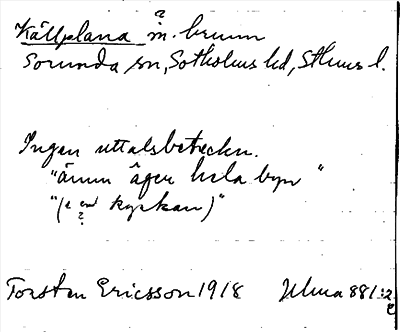 ?
Källplana m. brunn
Sorunda sn, Sotholms hd, Sthlms l.
Ingen uttalsbeteckn.
"ännu äger hela byn"
"( kyrkan)"
?
Torsten Ericsson 1918 Ulma 881:2